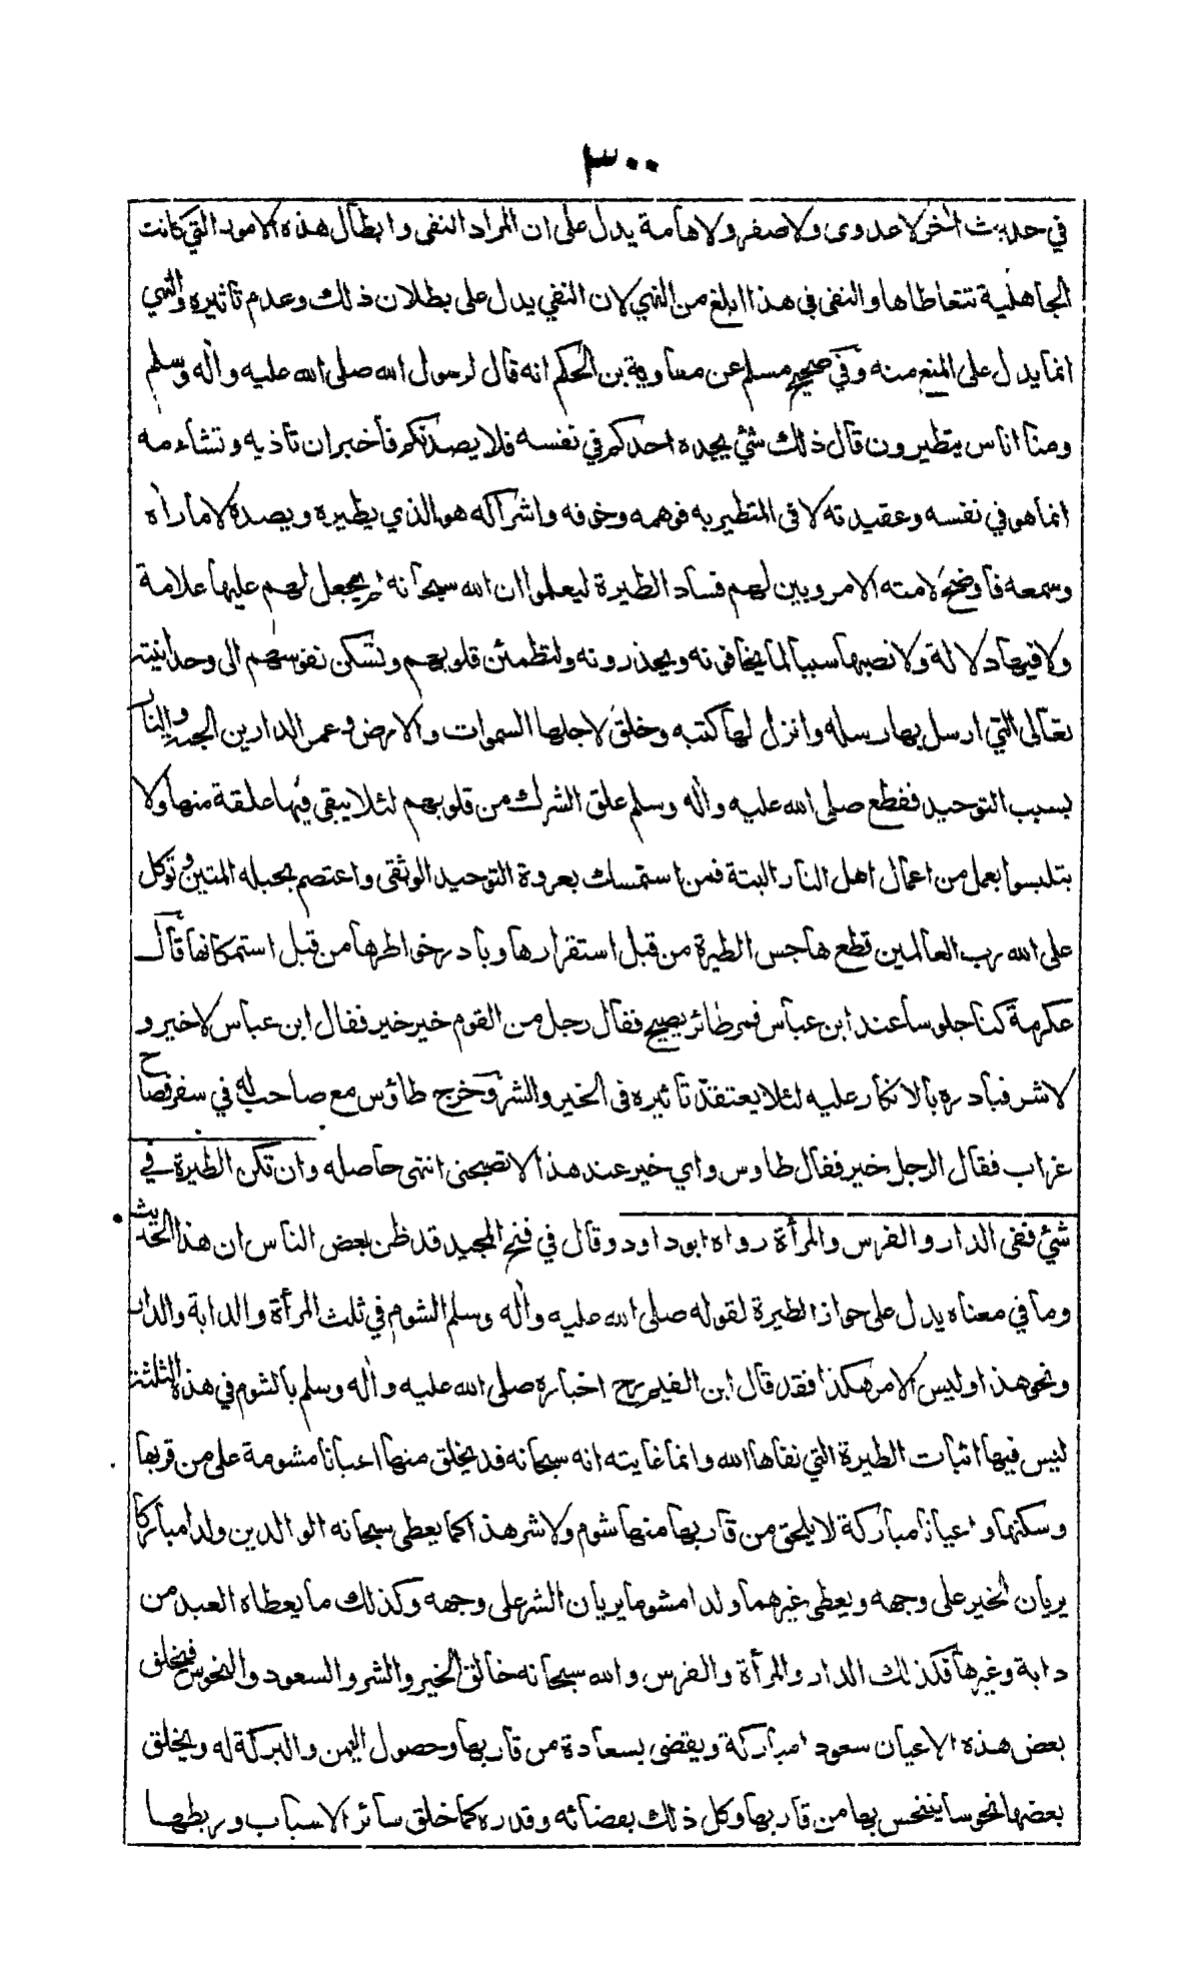 ٣٠٠
في حديث اخر لا عدوى ولا صفر ولا هامة يدل على ان المراد النفى وابطال هذه الامور التي كانت
الجاهلية تتعاطاها والنفى في هذا ابلغ من النهي لان النفي يدل على بطلان ذلك وعدم تاثيره والنهي
انما يدل على المنع منه وفي صحيح مسلم عن معاوية بن الحكم انه قال لرسول الله صلى الله عليه واله وسلم
ومنا اناس يتطيرون قال ذلك شئ يجده احدكم في نفسه فلا يصدنكم فأخبر ان تاذيه وتشاءمه
انما هو في نفسه وعقيدته لا فى المتطير به فوهمه وخوفه واشراكه هو الذي يطيره ويصده لا ما راه
وسمعه فاوضح لامته الامر وبين لهم فساد الطيرة ليعلموا ان الله سبحانه لم يجعل لهم عليها علامة
ولا فيها دلالة ولا نصبها سببا لما يخافونه ويحذرونه ولتطمئن قلوبهم وتسكن نفوسهم الى وحدانيته
تعالى التي ارسل بها رسله وانزل لها كتبه وخلق لاجلها السموات والارض وعمر الدارين الجنة والنار
بسبب التوحيد فقطع صلى الله عليه واله وسلم علق الشرك من قلوبهم لئلا يبقى فيها علقة منها ولا
يتلبسوا بعمل من اعمال اهل النار البتة فمن استمسك بعروة التوحيد الوثقى واعتصم بحبله المتين وتوكل
على الله رب العالمين قطع هاجس الطيرة من قبل استقرارها وبادر خواطرها من قبل استمكانها قال
عكرمة كنا جلوسا عند ابن عباس فمر طائر يصيح فقال رجل من القوم خير خير فقال ابن عباس لا خير و
لا شر فبادره بالانكار عليه لئلا يعتقد تاثيره فى الخير والشر وخرج طاؤس مع صاحب له في سفر فصاح
غراب فقال الرجل خير فقال طاوس واي خير عند هذا لا تصحبنى انتهى حاصله وان تكن الطيرة في
شئ ففى الدار والفرس والمرأة رواه ابو داود وقال في فتح المجيد قد ظن بعض الناس ان هذا الحديث
وما في معناه يدل على جواز الطيرة لقوله صلى الله عليه واله وسلم الشوم في ثلث المرأة والدابة والدار
ونحو هذا وليس الامر هكذا فقد قال ابن القيم رح اخباره صلى الله عليه واله وسلم بالشوم في هذه الثلثة
ليس فيها اثبات الطيرة التي نفاها الله وانما غايته انه سبحانه قد يخلق منها اعيانا مشومة على من قربها
وسكنها و اعيانا مباركة لا يلحق من قاربها منها شوم ولا شر هذا كما يعطى سبحانه الوالدين ولدا مباركا
يريان الخير على وجهه ويعطى غيرهما ولدا مشوما يريان الشر على وجهه وكذلك ما يعطاه العبد من
دابة وغيرها فكذلك الدار والمرأة والفرس والله سبحانه خالق الخير والشر والسعود والنحوس فيخلق
بعض هذه الاعيان سعودا مباركة ويقضى بسعادة من قاربها وحصول اليمن والبركة له ويخلق
بعضها نحوسا يتنحس بها من قاربها وكل ذلك بقضائه وقدره كما خلق سائر الاسباب وربطها